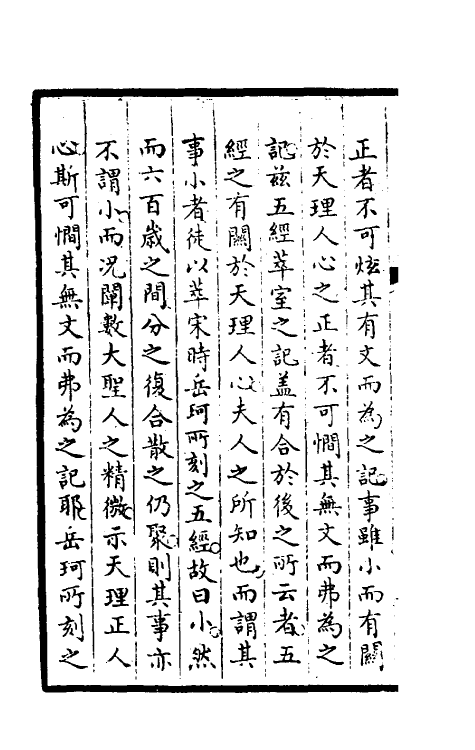 正者不可炫其有文而為之記事雖小而有關
於天理人心之正者不可憪其無文而弗為之
記茲五經萃室之記盖有合於後之所云者五
經之有關於天理人心夫人之所知也而謂其
事小者徒以萃宋時岳珂所刻之五經故曰小然
而六百歲之間分之復合散之仍聚則其事亦
不謂小而况闡數大聖人之精微示天理正人
心斯可憪其無文而弗為之記耶岳珂所刻之